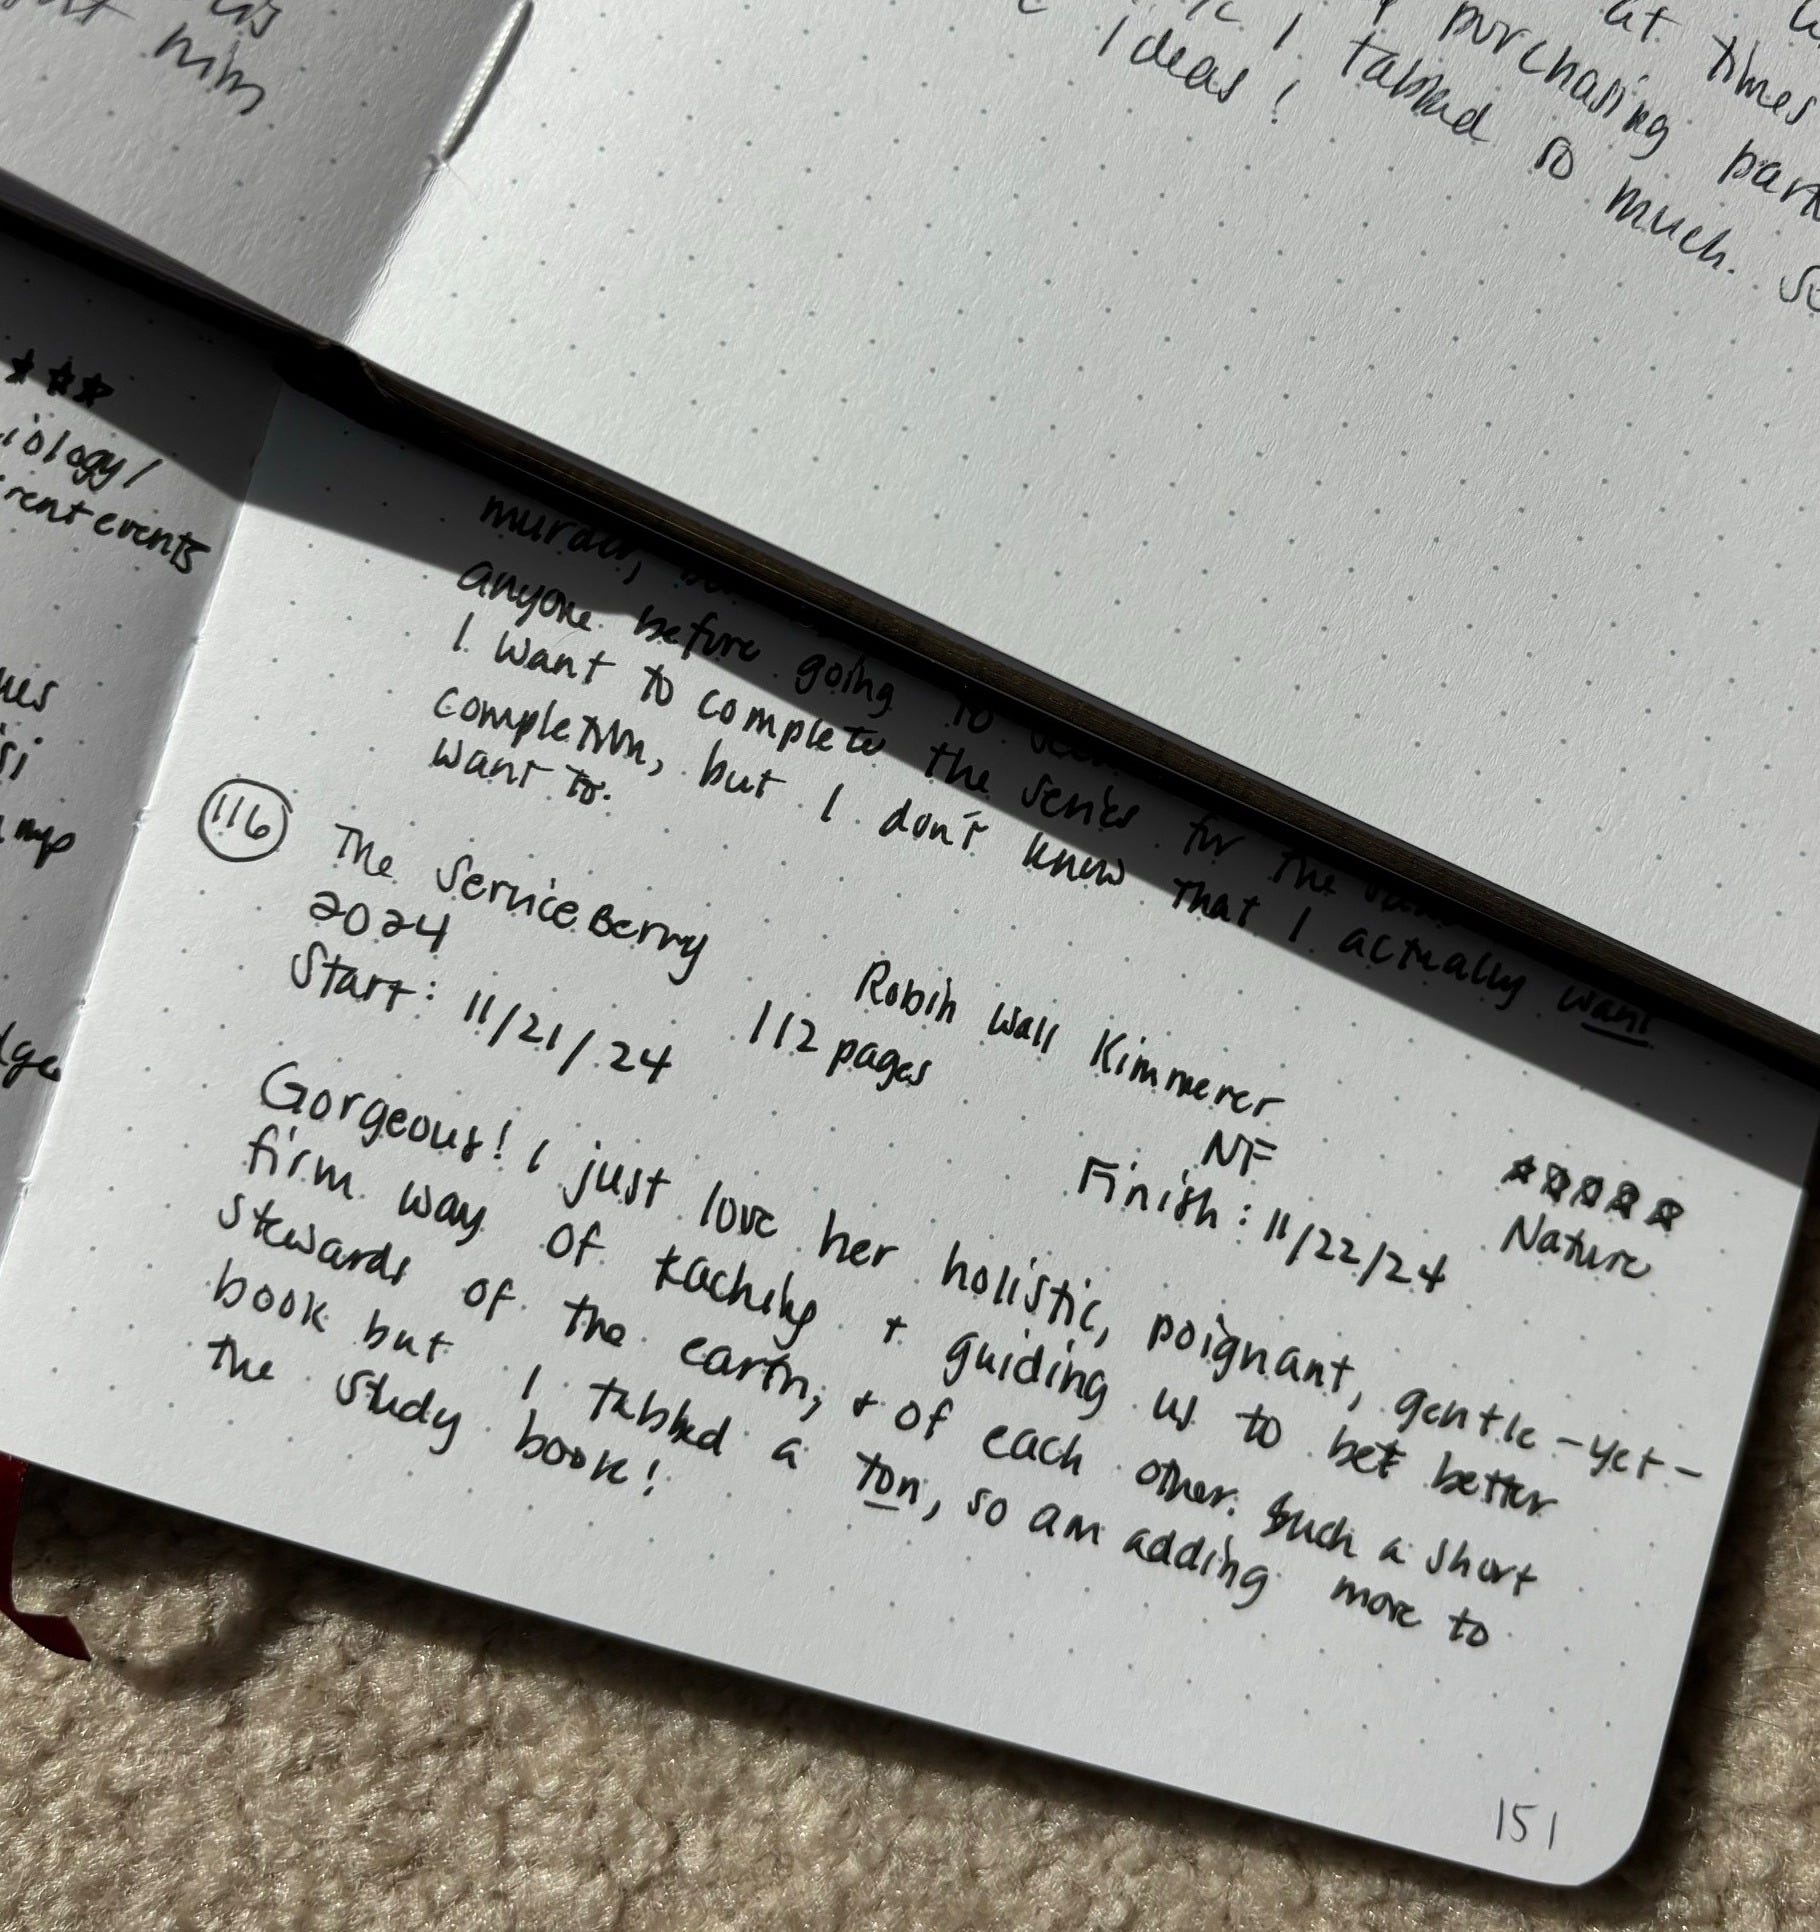 him
at times
purchasing
I tabbed so much.
ideas!
rent events
murder,
anyone before going to
I want to complete the series for the
completion, but I don't know that I actually want
want to.
116 The ServiceBerry Robin Wall Kimmerer
2024 112 pages NF Nature
Start: 11/21/24 Finish: 11/22/24
Gorgeous! I just love her holistic, poignant, gentle-yet-
firm way of teaching + guiding us to be better
stewards of the earth, + of each other. Such a short
book but I tabbed a ton, so am adding more to
the study book!
151